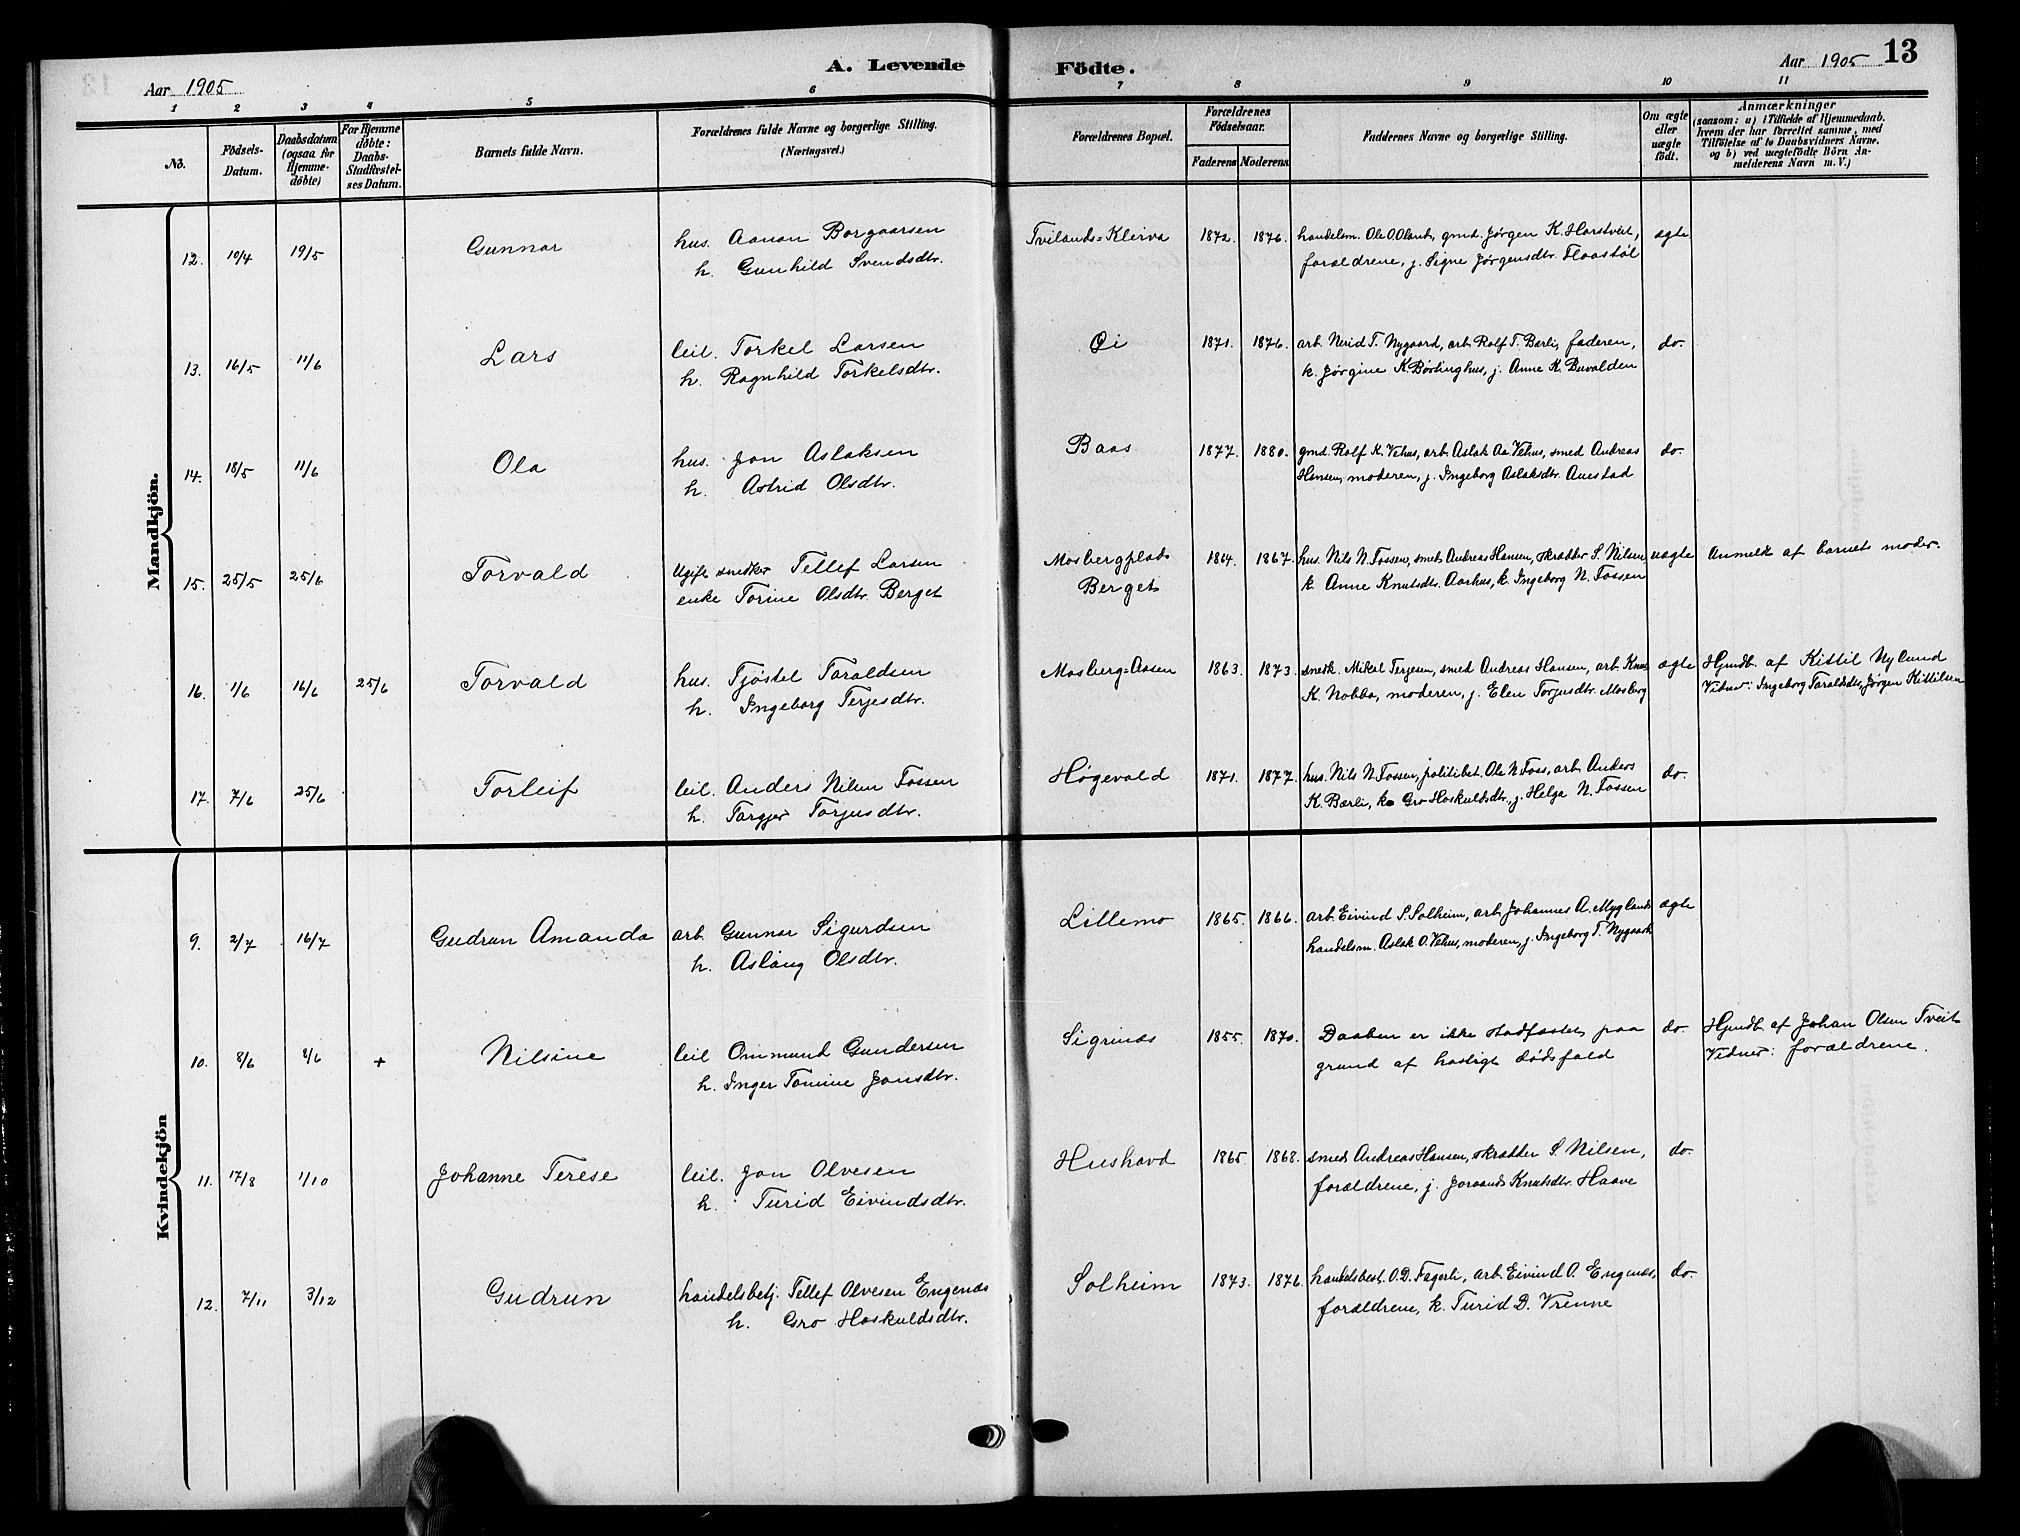 A. Levende Födte.
13
Aar 1905
Aar 1905
1 2 3 4 5 6 7 8 9 10 11
No.
Födsels-
Datum.
Daabsdatum
(ogsaa for
Hjemme-
döbte)
For Hjemme
döbte:
Daabs-
Stadfæstel-
ses Datum.
Barnets fulde Navn.
Forældrenes fulde Navne og borgerlige Stilling.
(Næringsvei.)
Forældrenes Bopæl.
Forældrenes
Födselsaar.
Faderens Moderens
Faddernes Navne og borgerlige Stilling.
Om ægte
eller
uægte
födt.
Anmærkninger
(saasom: a) i Tilfælde af Hjemmedaab,
hvem der har forrettet samme, med
Tilföielse af to Daabsvidners Navne,
og b) ved uægtefödte Börn An-
melderens Navn m. V.)
Mandkjön.
12. 10/4 19/5 Gunnar
hus. Aanon Borgaarsen
h. Gunhild Svendsdtr.
Tvilands=Kleiva 1872. 1876.
handelsm. Ole O. Oland, gmd. Jørgen K. Harstveit,
forældrene, j. Signe Jørgensdtr. Flaastøl
ægte
13. 16/5 11/6 Lars
leil. Torkel Larsen
h. Ragnhild Torkelsdtr.
Øi 1871. 1876.
arb. Nerid T. Nygaard, arb. Rolf T. Bærli, faderen,
k. Jørgine K. Børlinghus, j. Anne K. Buvalden
do.
14. 18/5 11/6 Ola
hus. Jon Aslaksen
h. Astrid Olsdtr.
Baas 1877. 1880.
gmd. Rolf K. Vehus, arb. Aslak Aa. Vehus, smed Andreas
Hansen, moderen, j. Ingeborg Aslaksdtr. Auestad
do.
15. 25/5 25/6 Torvald
Ugift snedker Tellef Larsen
enke Torine Olsdtr. Berget
Mosbergplads
Berget
1864. 1867.
hus. Nils N. Fossen, smed Andreas Hansen, skrædder S. Nilsen
k. Anne Knutsdtr. Aarhus, k. Ingeborg N. Fossen
uægte Anmeldt af barnets moder.
16. 1/6 16/6 25/6 Torvald
hus. Tjøstel Taraldsen
h. Ingeborg Terjesdtr.
Mosberg-Aasen 1863. 1873.
snedk. Mikal Terjesen, smed Andreas Hansen, arb. Knut
K. Nobba, moderen, j. Elen Torjusdtr. Mosberg
ægte
Hjmdb. af Kittil Nylund
Vidner: Ingeborg Taraldsdtr, Jørgen Kittilsen
17. 7/6 25/6 Torleif
leil. Anders Nilsen Fossen
h. Targjer Torjusdtr.
Høgevold 1871. 1877.
hus. Nils N. Fossen, politibet. Ole N. Foss, arb. Anders
K. Bærli, k. Gro Hoskuldsdtr., j. Helga N. Fossen
do.
Kvindekjön
9. 2/7 16/7 Gudrun Amanda
arb. Gunnar Sigurdsen
h. Aslaug Olsdtr.
Lillemo 1865. 1866.
arb. Eivind S. Solheim, arb. Johannes A. Mygland
handelsm. Aslak O. Vehus, moderen, j. Ingeborg T. Nygaard
ægte
10. 8/6 8/6 + Nilsine
leil Ommund Gundersen
h. Inger Tomine Jonsdtr.
Sigenæs 1855. 1870.
Daaben er ikke stadfæstet paa
grund af hastigt dødsfald
do.
Hjmdb. af Johan Olsen Tveit
Vidner: forældrene.
11. 17/8 1/10 Johanne Terese
leil. Jon Olvesen
h. Turid Eivindsdtr.
Hushavd 1865. 1868.
smed Andreas Hansen, skrædder S Nilsen,
forældrene, j. Joraand Knutsdtr. Haave
do.
12. 7/11 3/12 Gudrun
handelsbetj. Tellef Olvesen Engenæs
h. Gro Hoskuldsdtr.
Solheim 1873. 1876.
handelsbest. O.D. Fagerli, arb. Eivind O. Engenæs,
forældrene, k. Turid D. Vrenne
do.